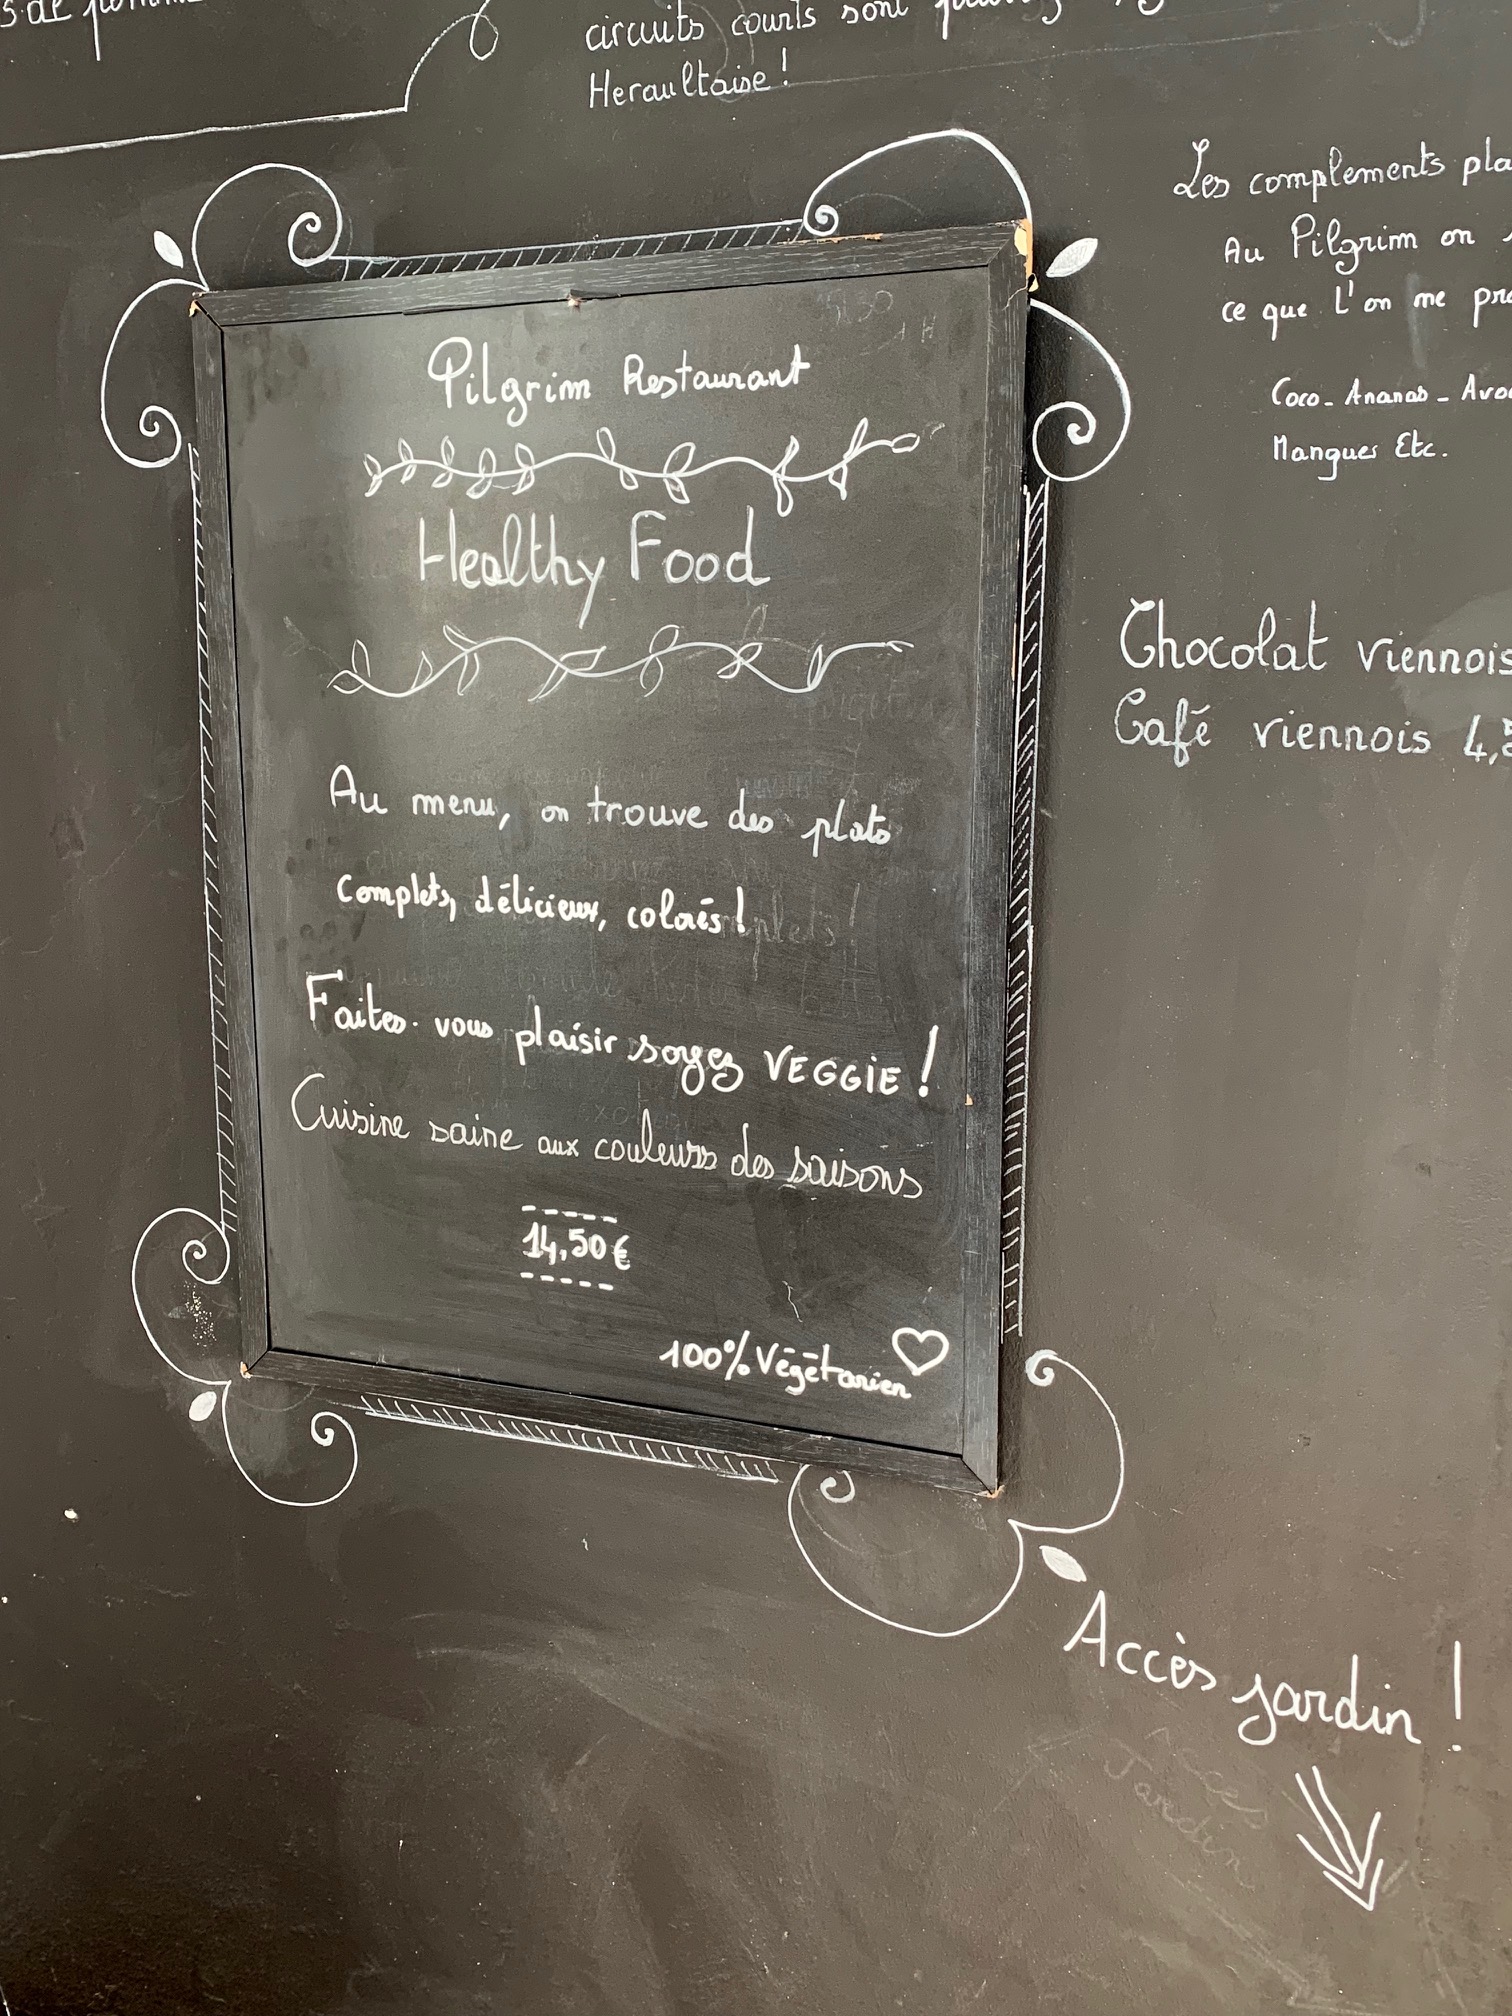 circuits courts sont
Heraultaise !
Les complements
Au Pilgrim on
ce que L'on me
Coco - Ananas -
Mangues Etc.
Pilgrim Restaurant
Healthy Food
Au menu, on trouve des plats
complets, délicieux, colorés !
Faites-vous plaisir soyez VEGGIE !
Cuisine saine aux couleurs des saisons
14,50€
100% Végétarien
Chocolat viennois
Café viennois
Accès jardin !
Acces
Jardin